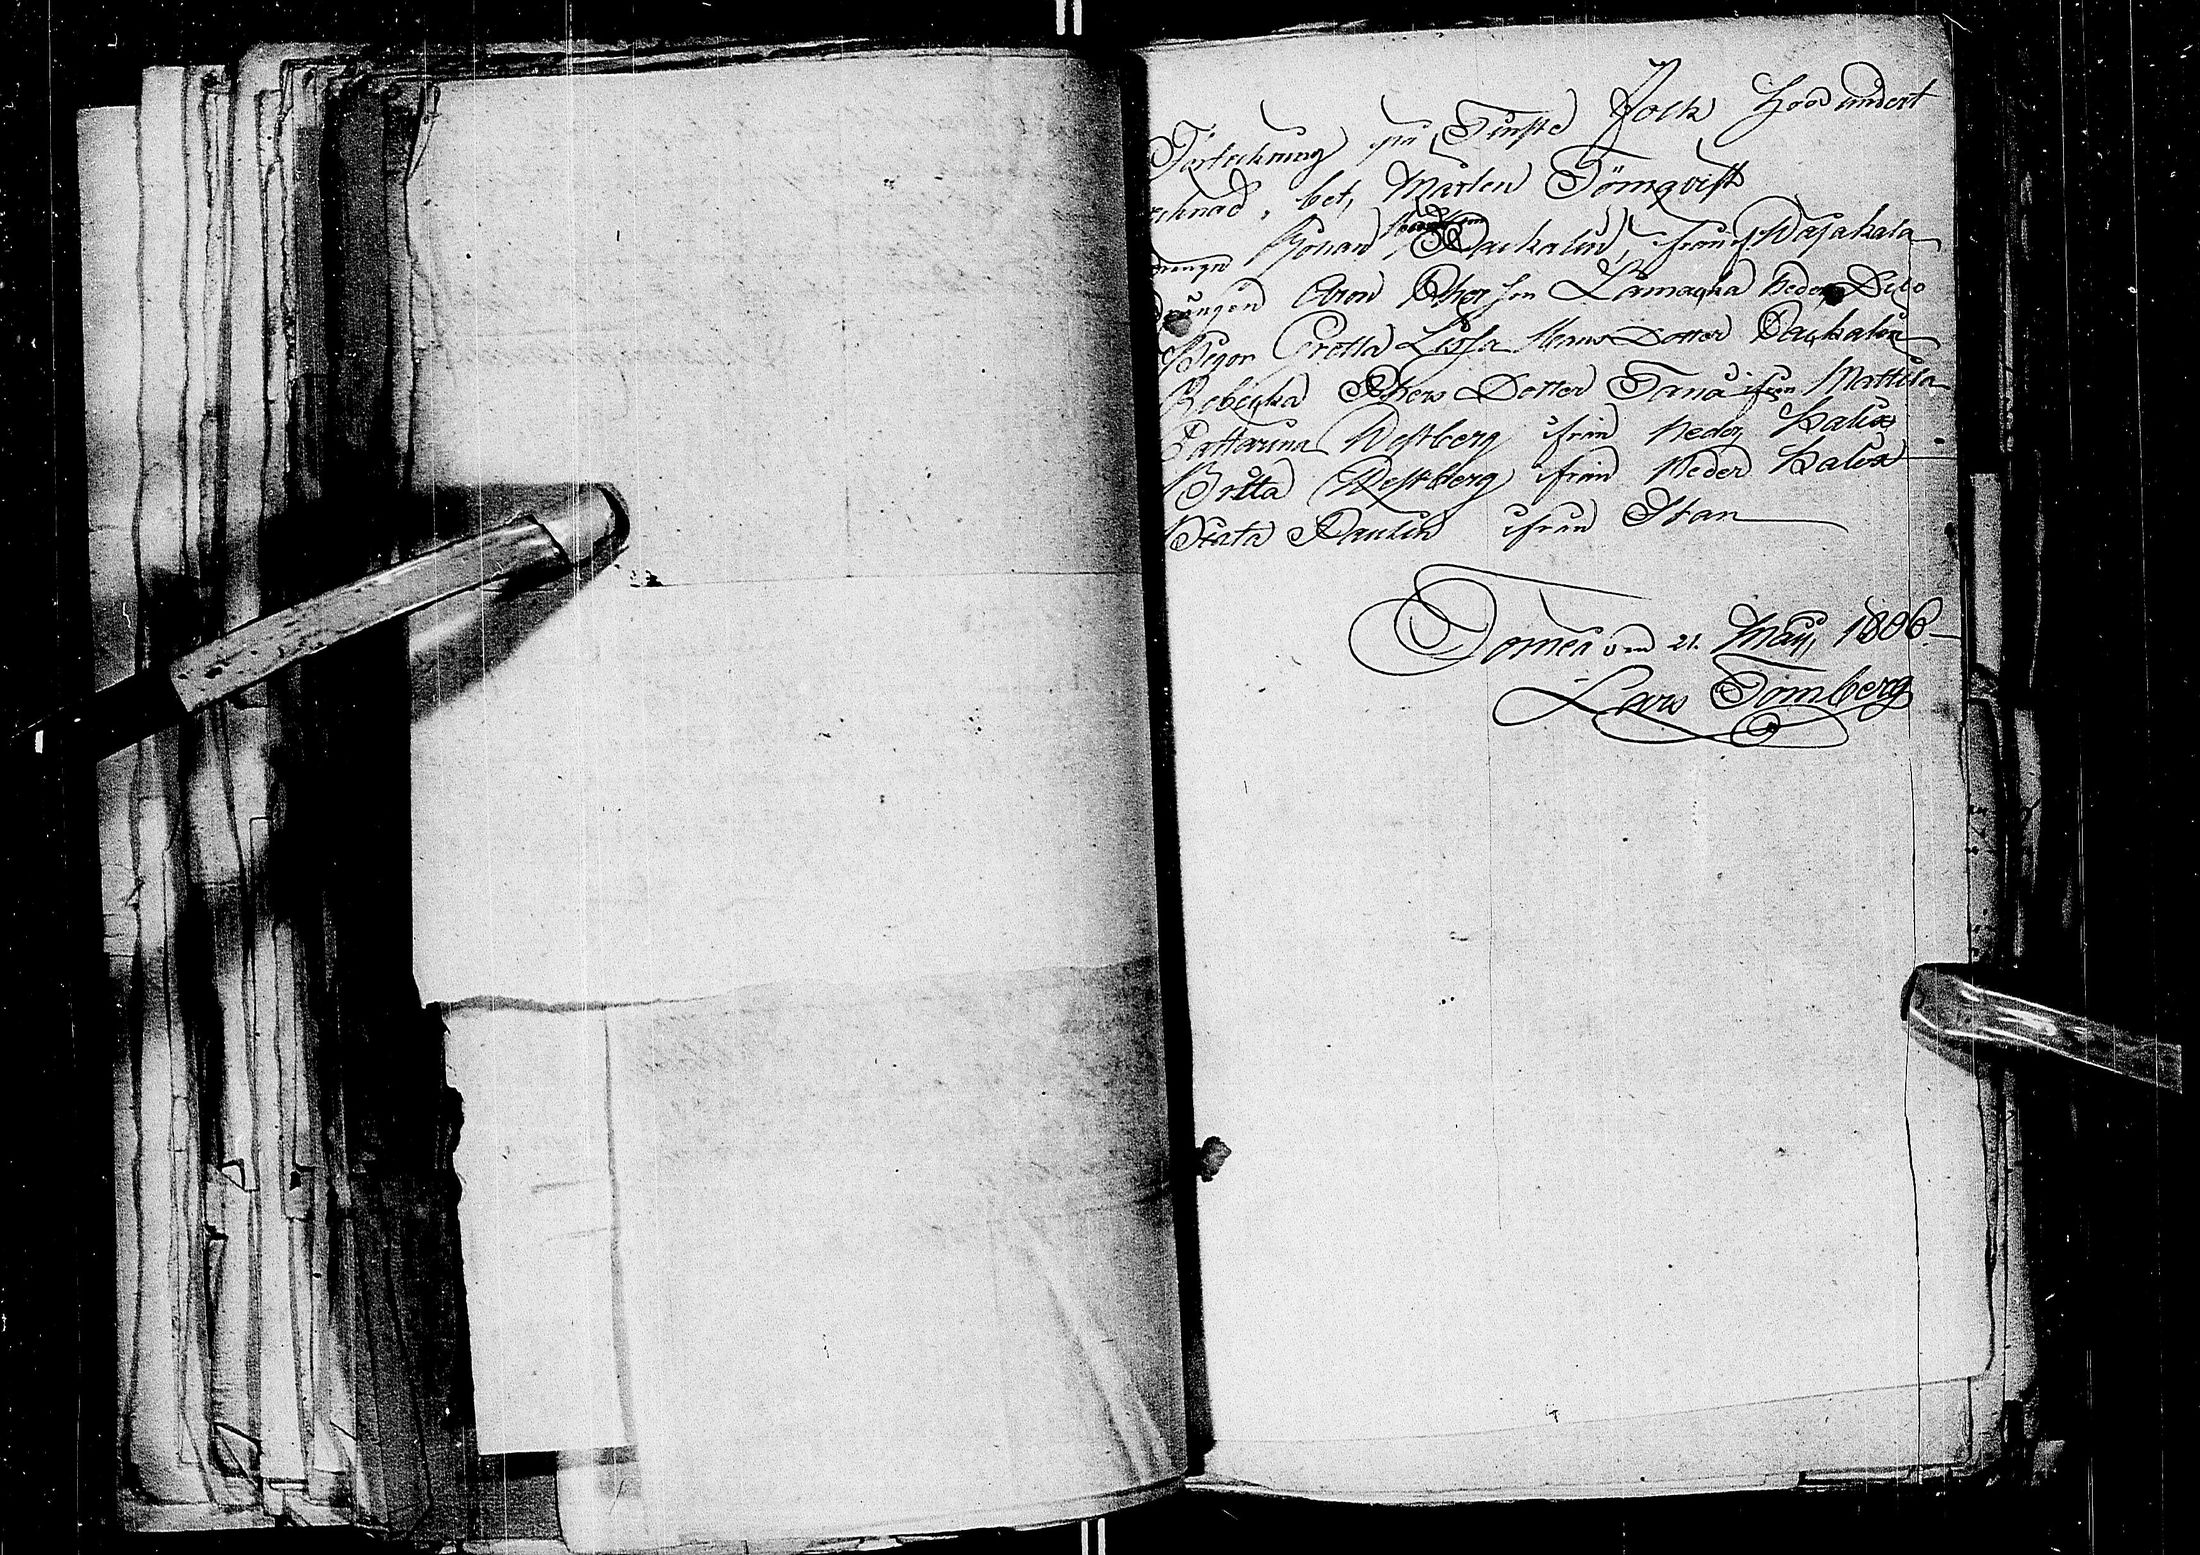 Förteckning på Tienste Folck Hoos undert
ecknad, bet, Mårten Törnqvist
Drengen Johan Packalen, ifrån Wojakala
Drängen Aron Pher Son Lamagka Neder Dito
Pigon Gretta Lissa Hans Dotter Packalen
Rebecka Phers Dotter Tana ifrån Mattila
Cattarina Westberg ifrån Neder Kalix
Britta Westberg ifrån Neder Kalix
Beata Paulin ifrån
Torneå den 21. Maij, 1806.
Lars Tornberg